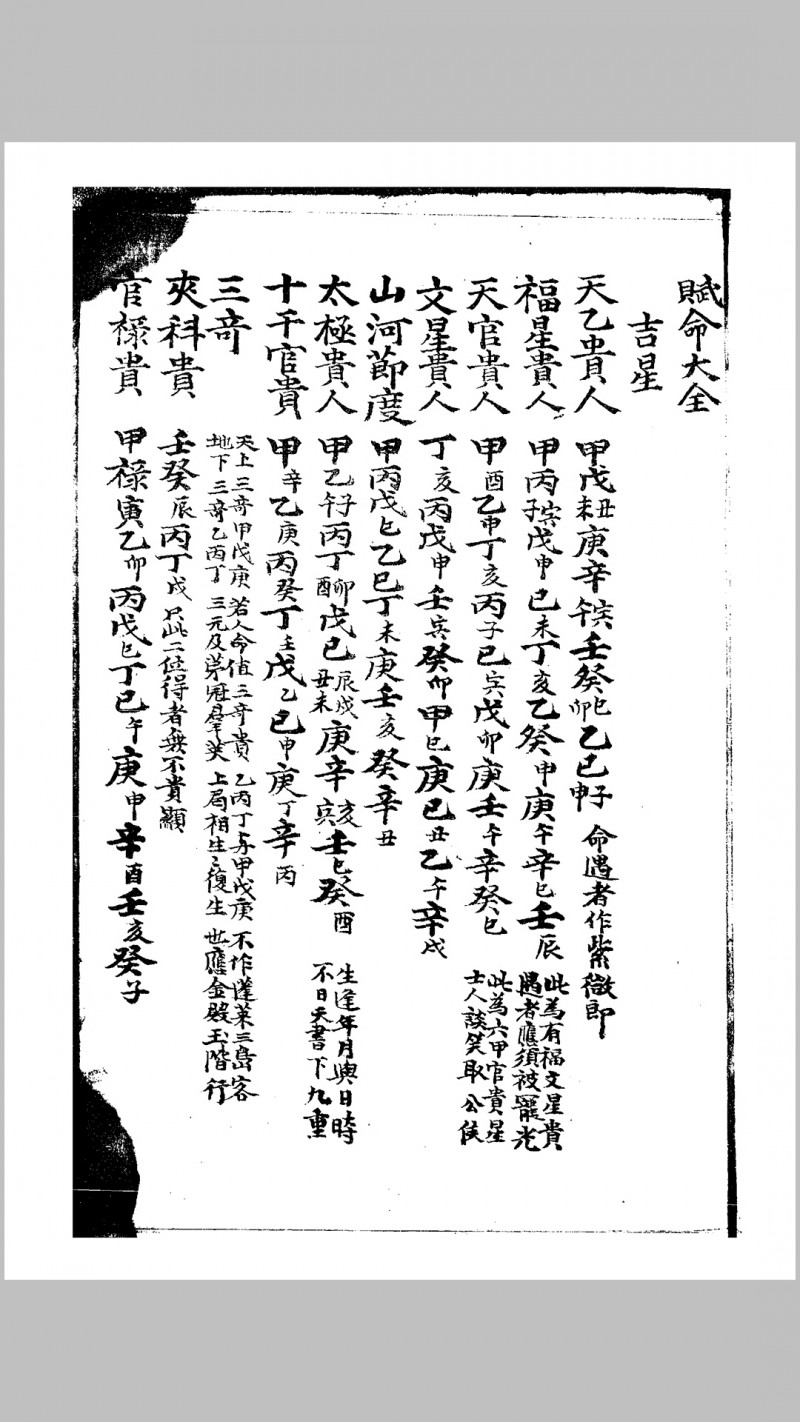 賦命大全
吉星
天乙貴人 甲戊未丑庚辛午寅壬癸卯巳乙己申子 命遇者作紫微郎
福星貴人 甲丙子寅戊申己未丁亥乙癸申庚午辛巳壬辰 此為有福文星貴 遇者應須被寵光
天官貴人 甲酉乙申丁亥丙子己寅戊卯庚壬午辛癸巳 此為六甲官貴星 士人談笑取公侯
文星貴人 丁亥丙戊申壬寅癸卯甲巳庚己丑乙午辛戌
山河節度 甲丙戊巳乙己丁未庚壬亥癸辛丑
太極貴人 甲乙午子丙丁酉卯戊己辰戌丑未庚辛亥寅壬巳癸酉 生逢年月與日時 不日天書下九重
十干官貴 甲辛乙庚丙癸丁壬戊乙己申庚丁辛丙
三奇 天上三奇甲戊庚 若人命值三奇貴 乙丙丁与甲戊庚 不作蓬萊三島客 地下三奇乙丙丁 三元及第冠羣英 上局相生々復生 也應金殿玉階行
夾科貴 壬癸辰丙丁戌 只此二位得者無不貴顯
官祿貴 甲祿寅乙卯丙戊巳丁己午庚申辛酉壬亥癸子